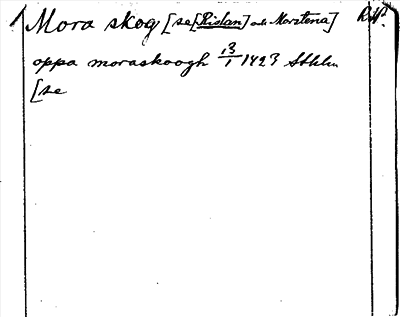 Mora skog [se [Rislan] och Morstena] RAp.
oppa moraskoogh 13/1 1423 Sthlm
[se